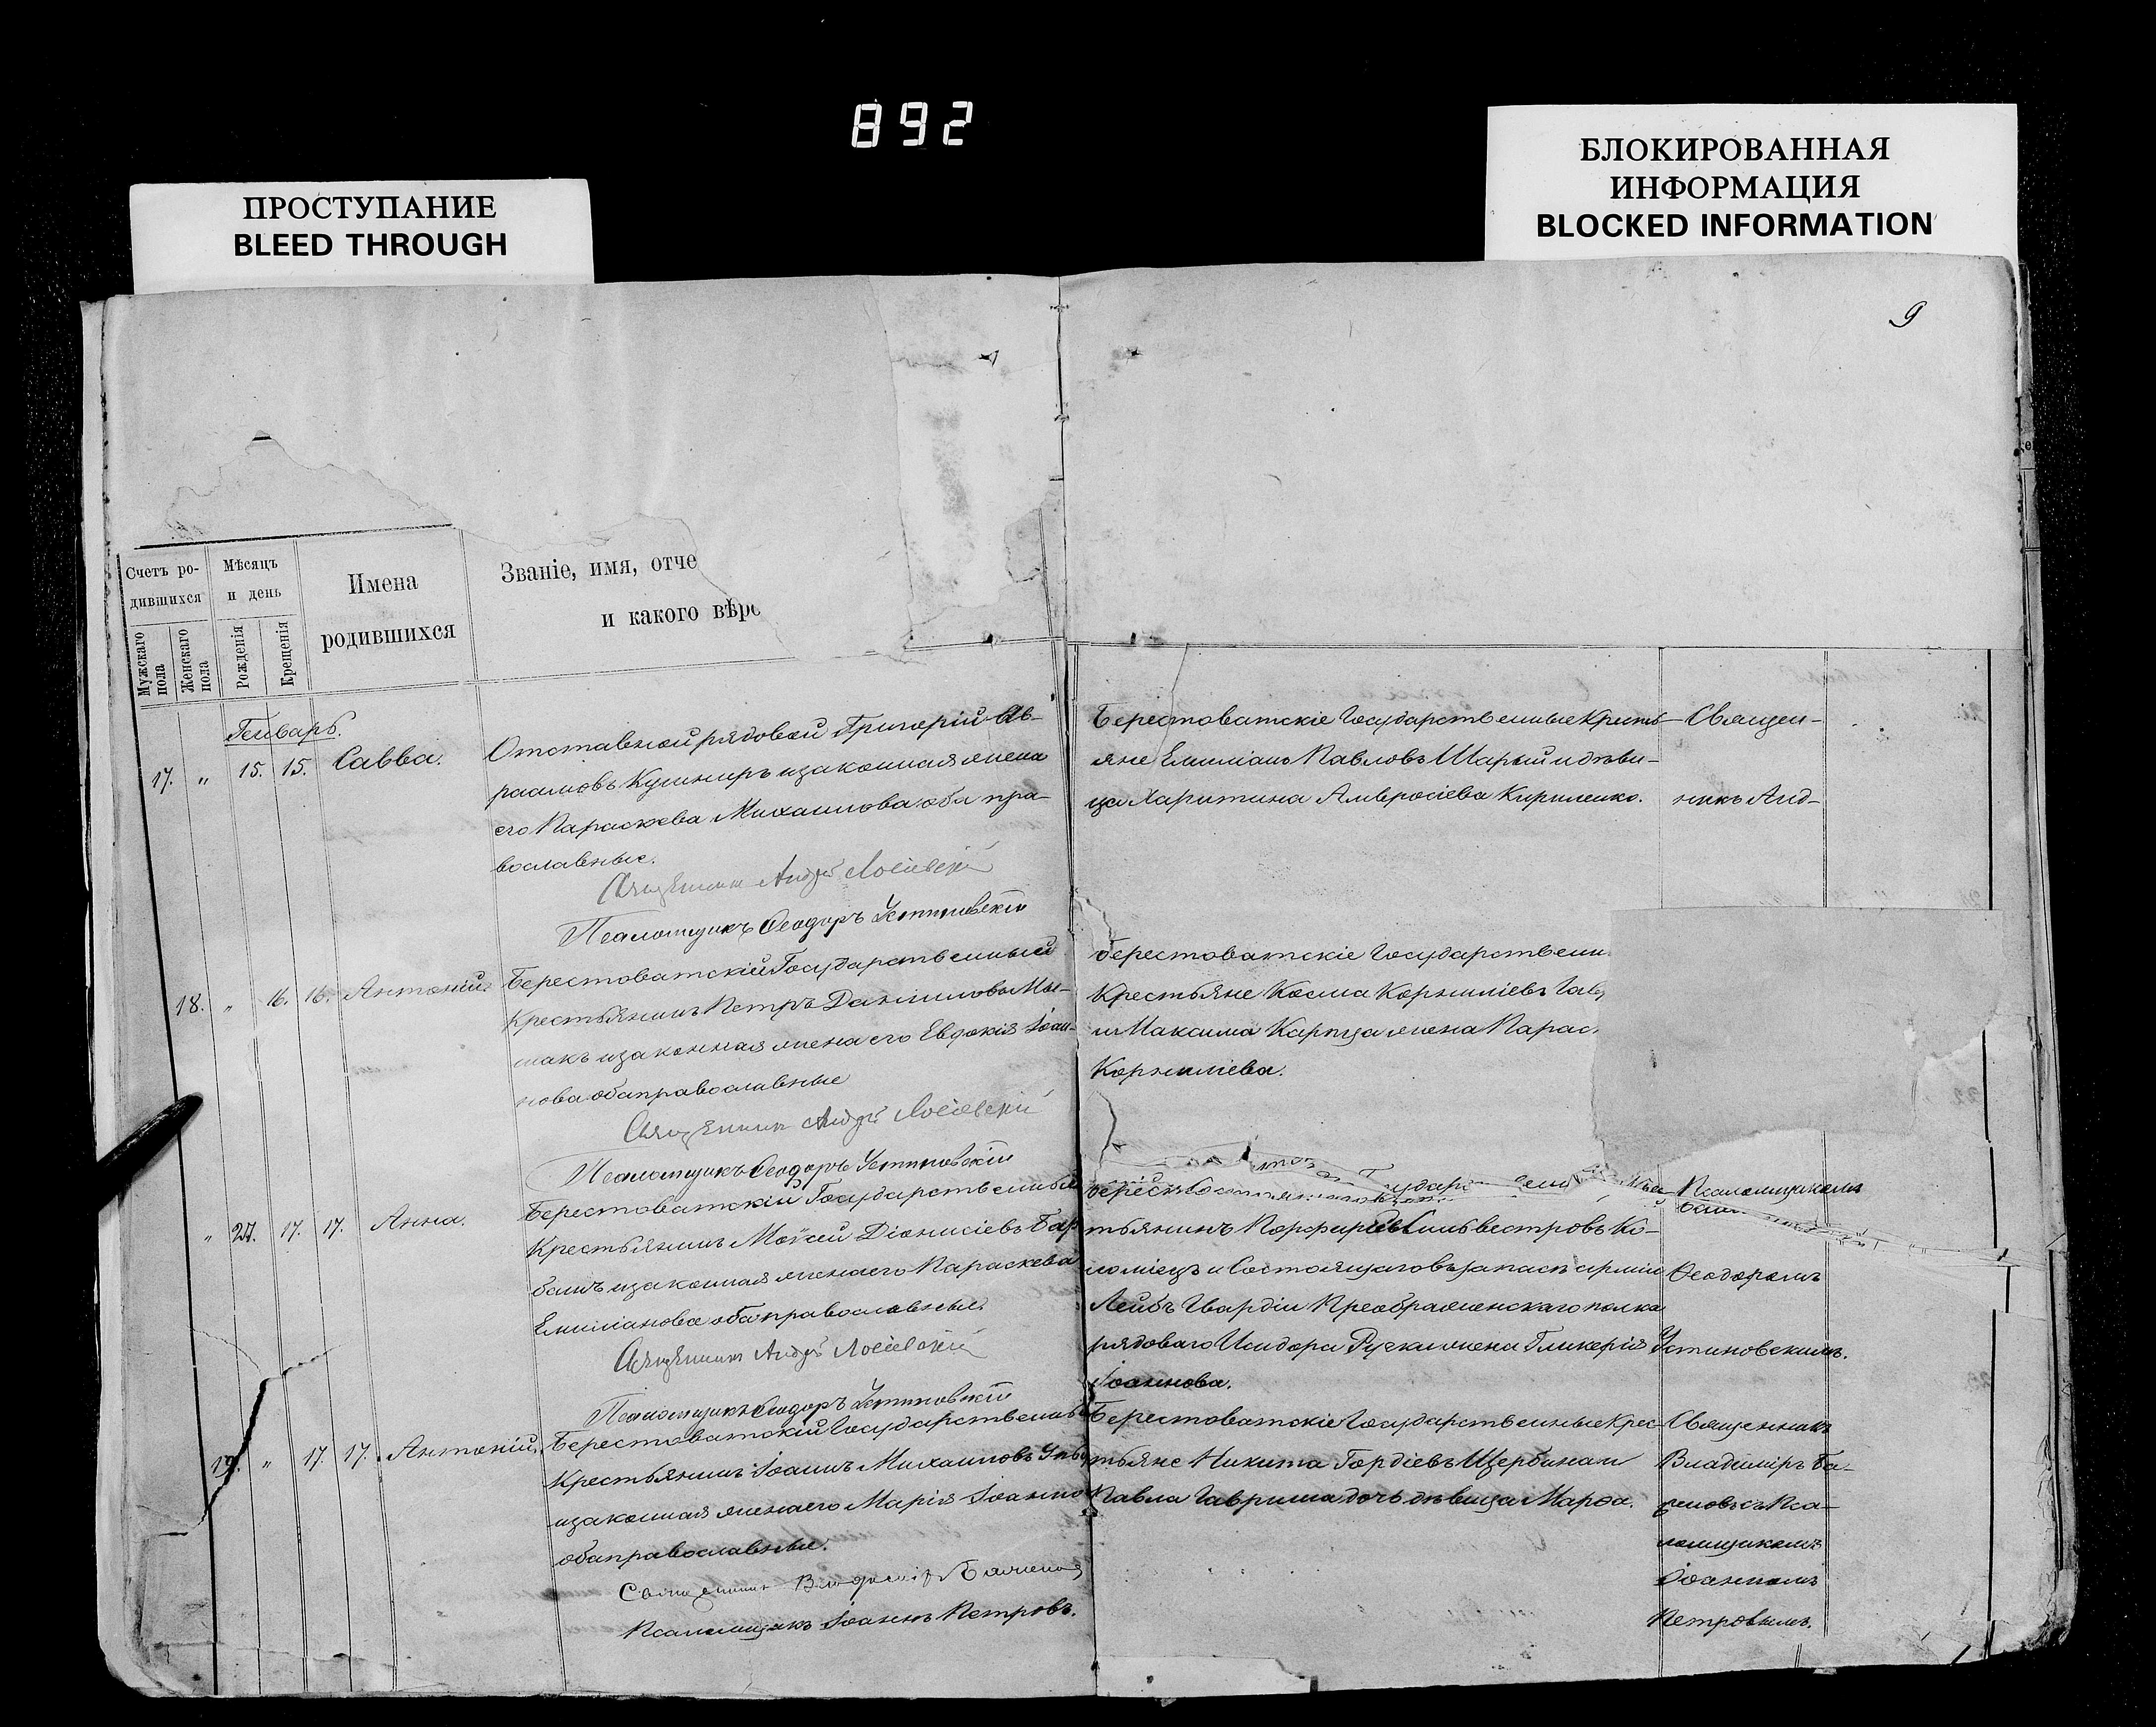 892
ПРОСТУПАНИЕ
BLEED THROUGH
БЛОКИРОВАННАЯ
ИНФОРМАЦИЯ
BLOCKED INFORMATION
9
Счетъ ро-
дившихся
Мужскаго пола
Женскаго пола
Мѣсяцъ
и день
Рожденія
Крещенія
Имена
родившихся
Званіе, имя, отче
и какого вѣро
Генварь.
17. " 15. 15. Савва.
Отставной рядовой Григорій Ав-
раамовъ Кушниръ и законная жена
его Параскева Михаилова оба пра-
вославные.
Священникъ Андрей
Псаломщикъ Ѳеодоръ Устиновскій
Берестоватскіе Государственные Кресть-
яне Емиліанъ Павловъ Шарый и дѣви-
ца Харитина Амвросіева Кириленко.
Священ-
никъ Анд-
18. " 16. 16. Антоній.
Берестоватскій Государственный
Крестьянинъ Петръ Даніиловъ
и законная жена его Евдокія Іоан-
нова оба православные
Священникъ Андрей
Псаломщикъ Ѳеодоръ Устиновскій
Берестоватскіе Государственн
Крестьяне Косма Корниліевъ Гав
и Максима Карпца жена Парас
Корниліева.
" 17. 17. Анна.
Берестоватскій Государственный
Крестьянинъ Моѵсей Діонисіевъ Бар
банъ и законная жена его Параскева
Емиліанова оба православные.
Священникъ Андрей
Псаломщикъ Ѳеодоръ Устиновскій
тьянинъ Порфирій Сильвестровъ Ко-
ломіецъ и Состоящаго въ запасѣ арміи
Лейбъ Гвардіи Преображенскаго полка
рядоваго Исидора жена Гликерія
Іоаннова.
Псаломщикомъ
Ѳеодоромъ
Устиновскимъ.
19. " 17. 17. Антоній.
Берестоватскій Государственны
Крестьянинъ Іоаннъ Михаиловъ
и законная жена его Марія Іоанно
оба православные.
Священникъ Владиміръ
Псаломщикъ Іоаннъ Петровъ.
Берестоватскіе Государственные Крес-
тьяне Никита Гордіевъ Щербина и
Павла Гавриша дочь дѣвица Марѳа.
Священникъ
Владиміръ Ба-
съ Пса-
ломщикомъ
Іоанномъ
Петровымъ.